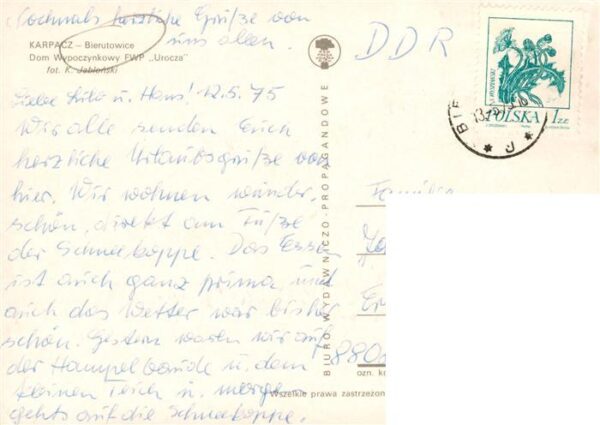 Nochmals herzliche Grüße von
uns allen.
KARPACZ – Bierutowice
Dom Wypoczynkowy FWP „Urocza”
fot. K. Jabłoński
Liebe Rita u. Hans! 12.5.75
Wir alle senden Euch
herzliche Urlaubsgrüße von
hier. Wir wohnen wunder-
schön, direkt am Fuße
der Schneekoppe. Das Essen
ist auch ganz prima, und
auch das Wetter war bisher
schön. Gestern waren wir auf
der Hampelbaude u. dem
kleinen Teich u. morgen
gehts auf die Schneekoppe.
BIURO WYDAWNICZO-PROPAGANDOWE
DDR
POLSKA 1 ZŁ
Familie
880
ozn. k
Wszelkie prawa zastrzeżon